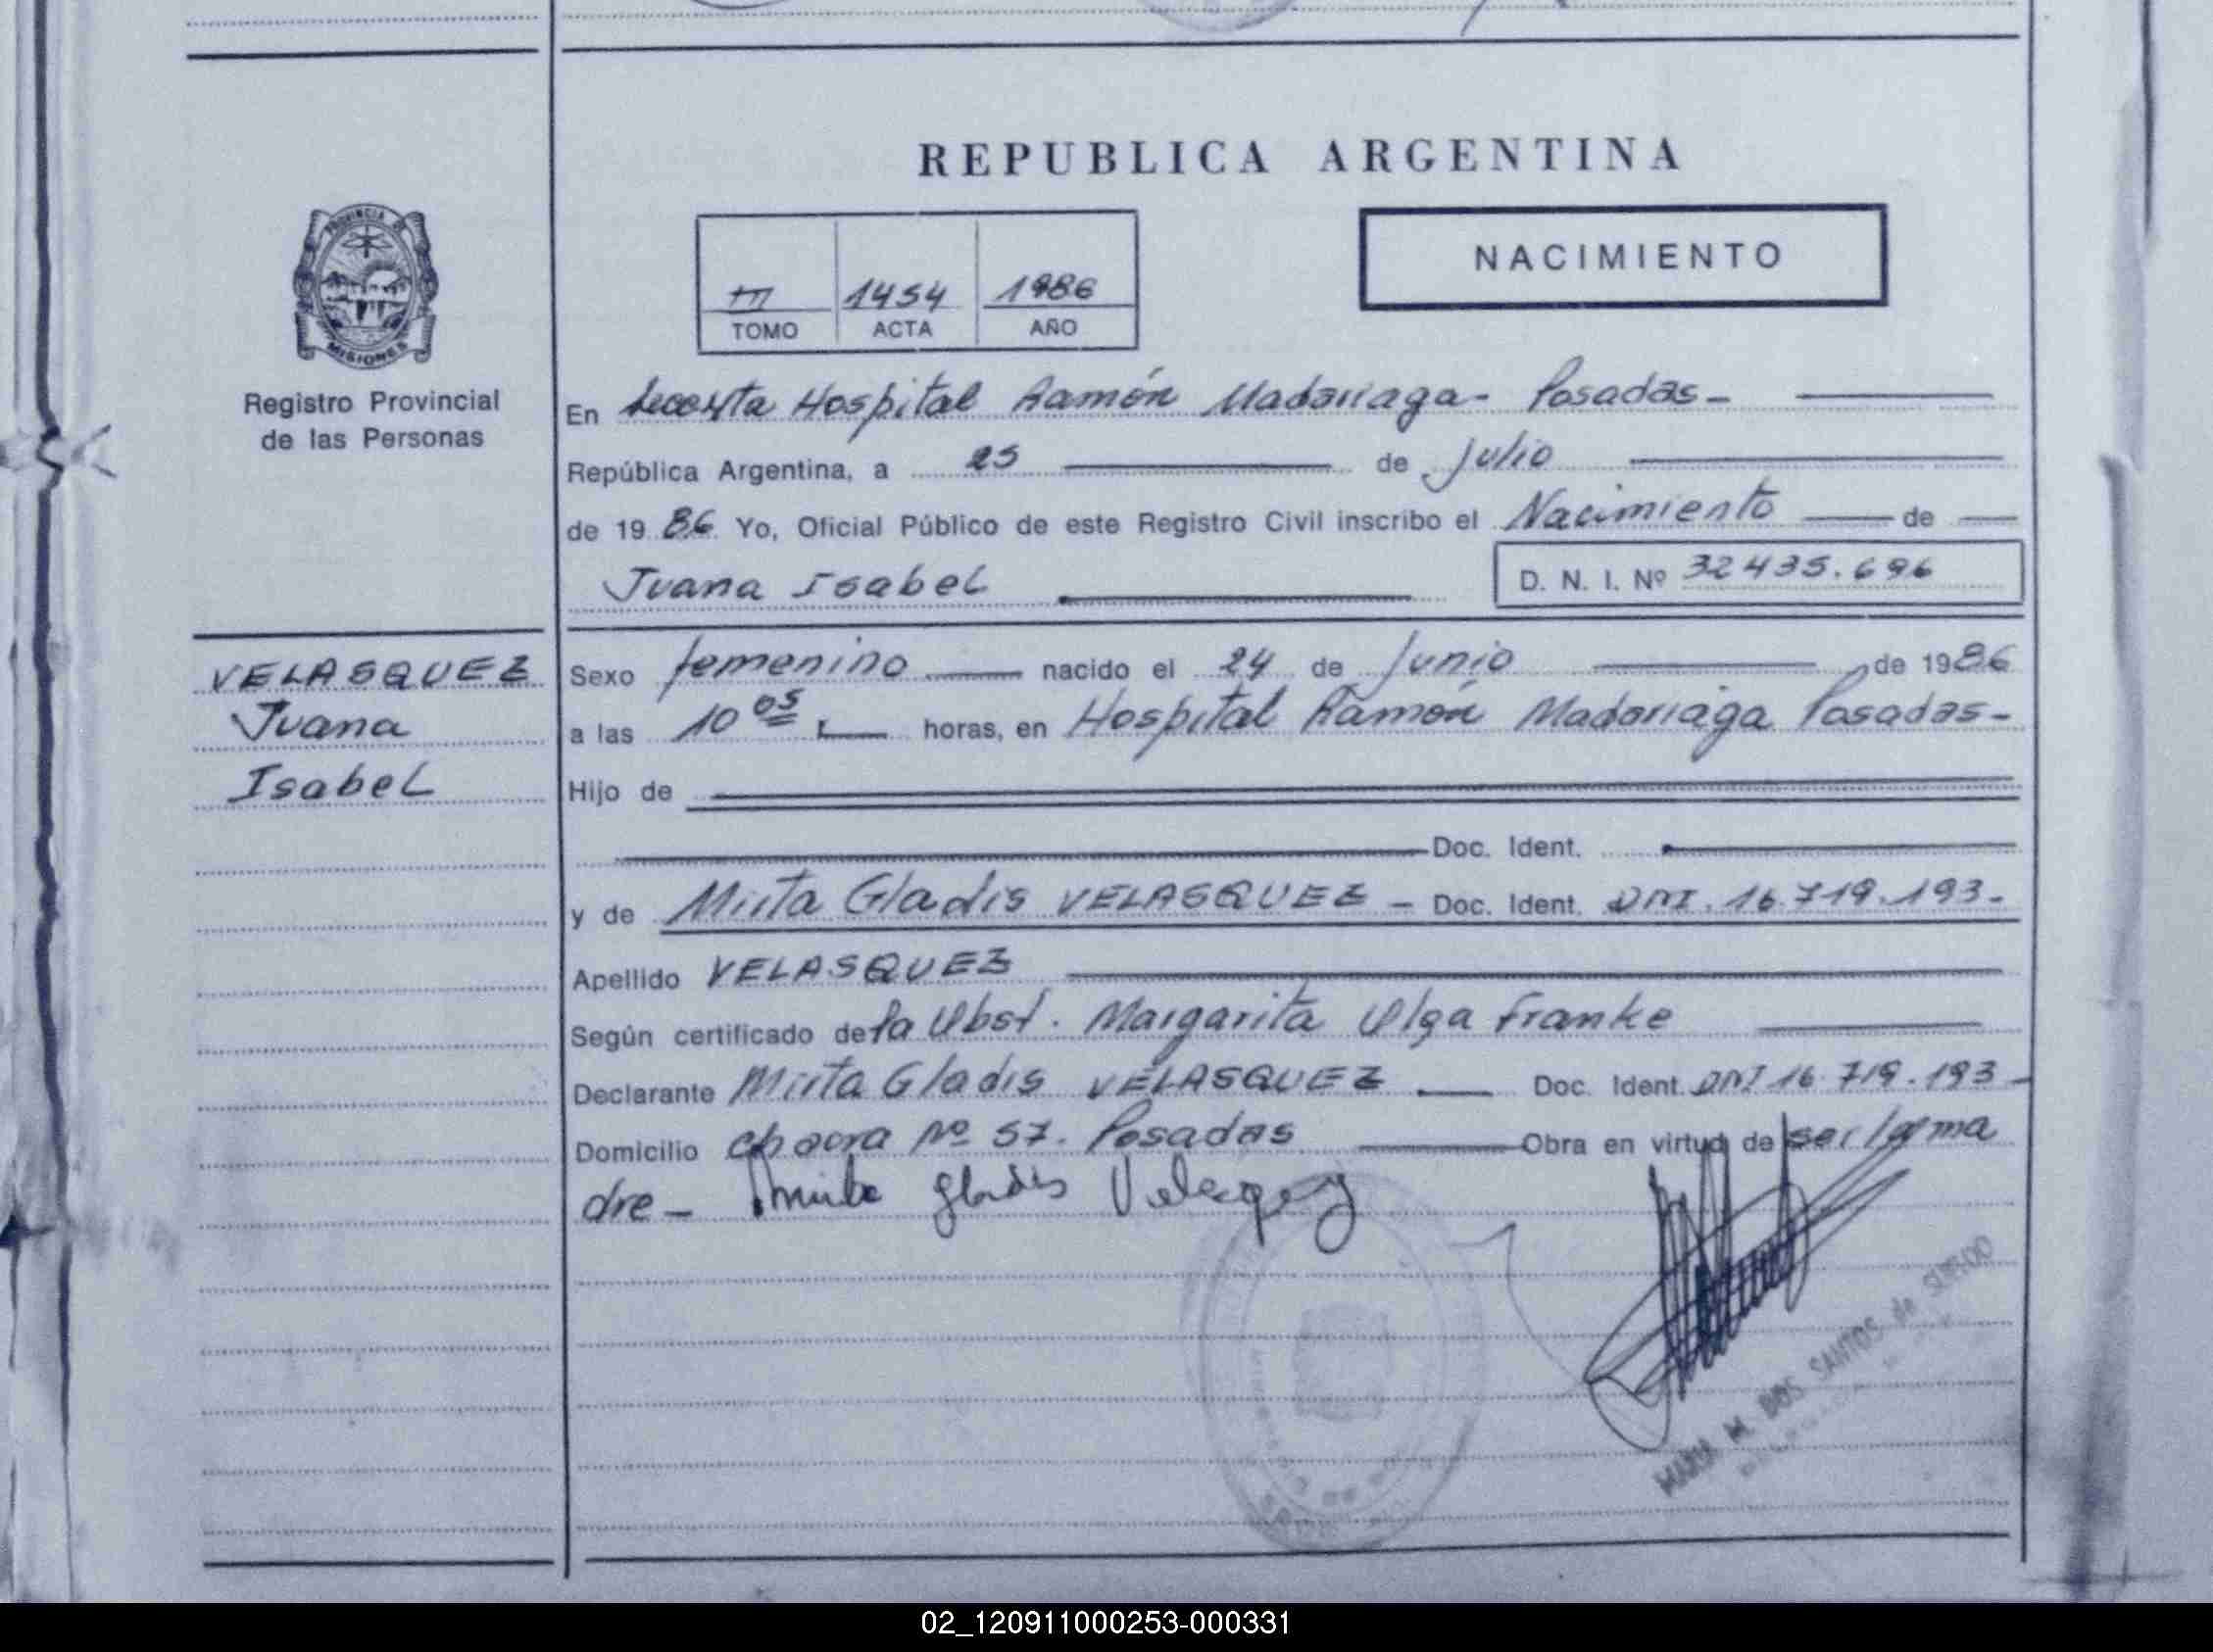 REPUBLICA ARGENTINA
NACIMIENTO
III 1454 1986
TOMO ACTA AÑO
PROVINCIA DE
MISIONES
Registro Provincial
de las Personas
En Hospital Ramón Madariaga - Posadas -
República Argentina, a 25 de Julio
de 1986 Yo, Oficial Público de este Registro Civil inscribo el Nacimiento de
Juana Isabel
D. N. I. Nº 32435.696
VELASQUEZ
Juana
Isabel
Sexo femenino nacido el 24 de Junio de 1986
a las 10 05 horas, en Hospital Ramón Madariaga Posadas -
Hijo de
Doc. Ident.
y de Mirta Gladis VELASQUEZ - Doc. Ident. DNI. 16.719.193.
Apellido VELASQUEZ
Según certificado de la Obst. Margarita Olga Franke
Declarante Mirta Gladis VELASQUEZ Doc. Ident. DNI 16.719.193 -
Domicilio chacra Nº 57. Posadas Obra en virtud de ser la ma
dre - Mirta Gladis Velasquez
MARIA M. DOS SANTOS de
02_120911000253-000331